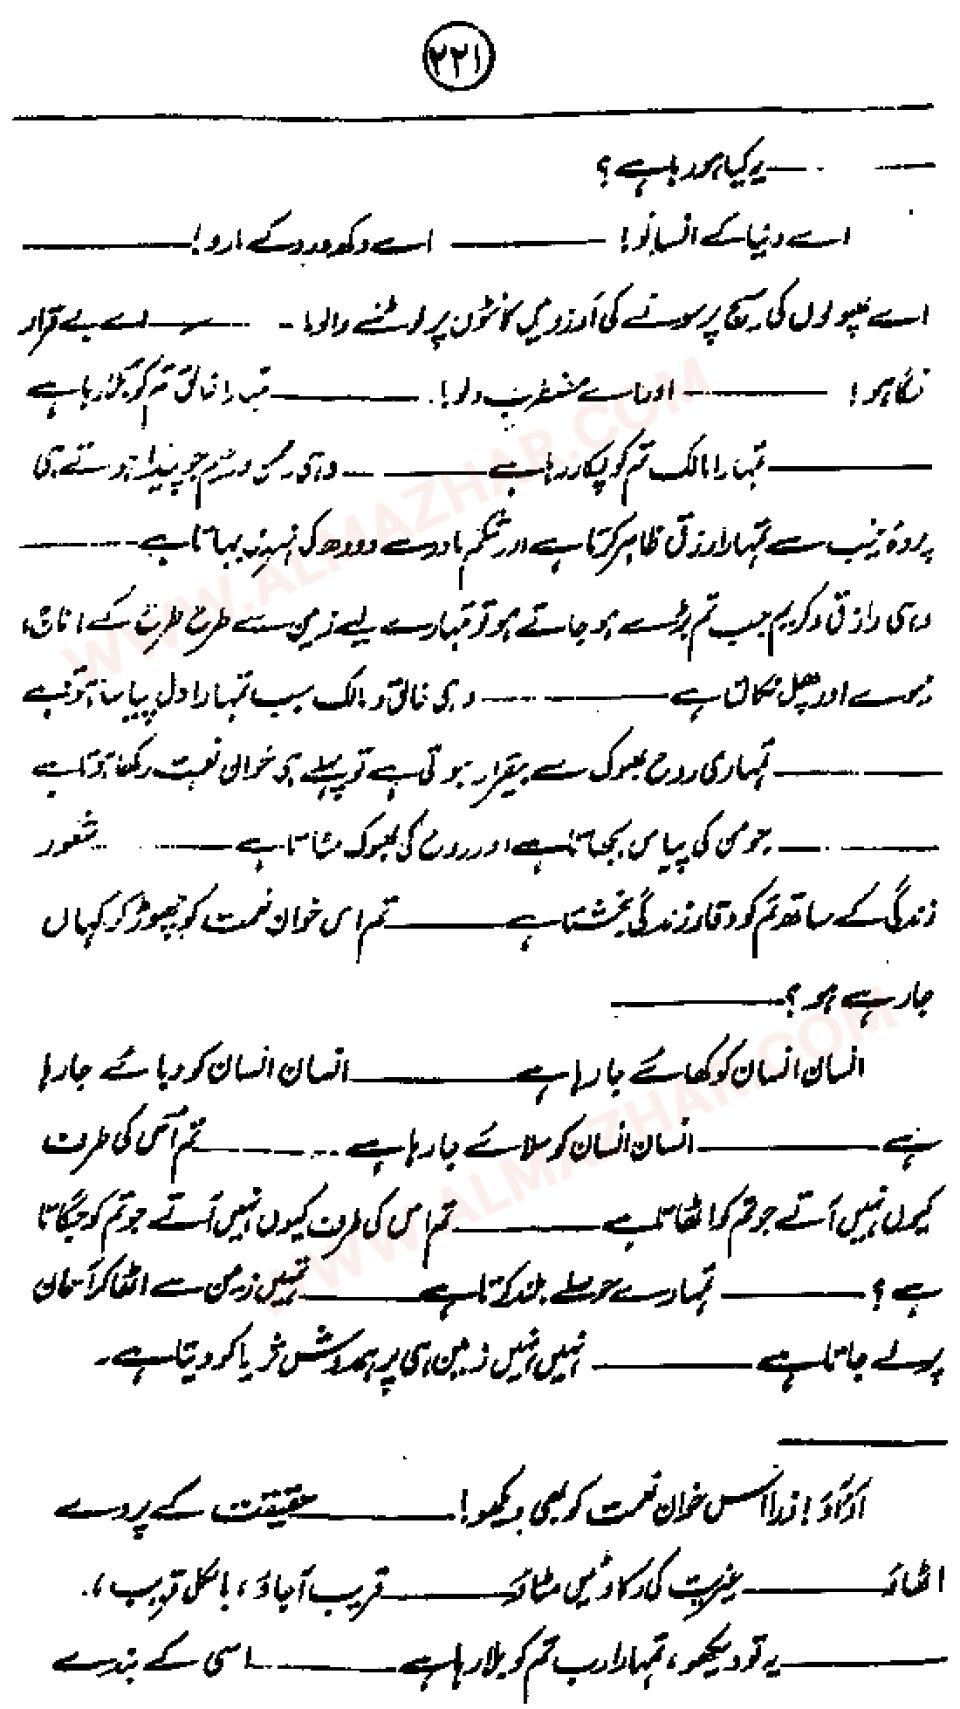 ۲۲۱
— یہ کیا ہو رہا ہے ؟
اے دنیا کے انسانو! — اے دکھ درد کے مارو! —
اے پھولوں کی سیج پر سونے کی آرزو میں کانٹوں پر لوٹنے والو! — اے بے قرار
نگاہو! — اور اے مضطرب دلو! — تمہارا خالق تم کو پکار رہا ہے
— تمہارا مالک تم کو پکار رہا ہے — وہی رحمٰن و رحیم جو پیدا ہوتے ہی
پردۂ غیب سے تمہارا رزق ظاہر کرتا ہے اور شکم مادر سے دودھ کی نہریں بہاتا ہے —
وہی رازق و کریم جب تم بڑے ہو جاتے ہو تو تمہارے لیے زمین سے طرح طرح کے اناج،
میوے اور پھل نکالتا ہے — وہی خالق و مالک جب تمہارا دل پیاسا ہوتا ہے
— تمہاری روح بھوک سے بیقرار ہوتی ہے تو پہلے ہی خوان نعمت رکھا ہوتا ہے
— جو من کی پیاس بجھاتا ہے اور روح کی بھوک مٹاتا ہے — شعور
زندگی کے ساتھ تم کو وقار زندگی بخشتا ہے — تم اس خوان نعمت کو چھوڑ کر کہاں
جا رہے ہو ؟ —
انسان انسان کو کھائے جا رہا ہے — انسان انسان کو دبائے جا رہا
ہے — انسان انسان کو سلائے جا رہا ہے — تم اُس کی طرف
کیوں نہیں آتے جو تم کو اٹھاتا ہے — تم اس کی طرف کیوں نہیں آتے جو تم کو جگاتا
ہے ؟ — تمہارے حوصلے بلند کرتا ہے — تمہیں زمین سے اٹھا کر آسمان
پر لے جاتا ہے — نہیں نہیں زمین ہی پر ہمدوش ثریا کر دیتا ہے۔
—
آؤ آؤ! ذرا اس خوان نعمت کو بھی دیکھو! — حقیقت کے پردے
اٹھاؤ — غیریت کی رکاوٹیں مٹاؤ — قریب آجاؤ، بالکل قریب،
— یہ تو دیکھو، تمہارا رب تم کو بلا رہا ہے — اسی کے بندے
WWW.ALMAZHAR.COM
WWW.ALMAZHAR.COM